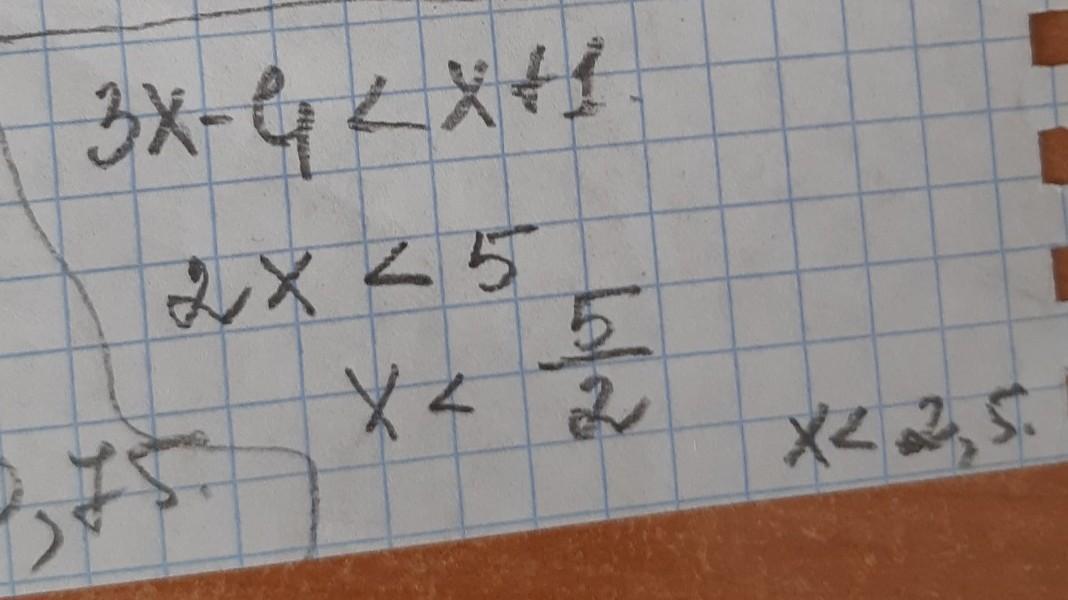 3x - 4 < x + 1.
2x < 5
x < 5/2
x < 2,5.
,75.